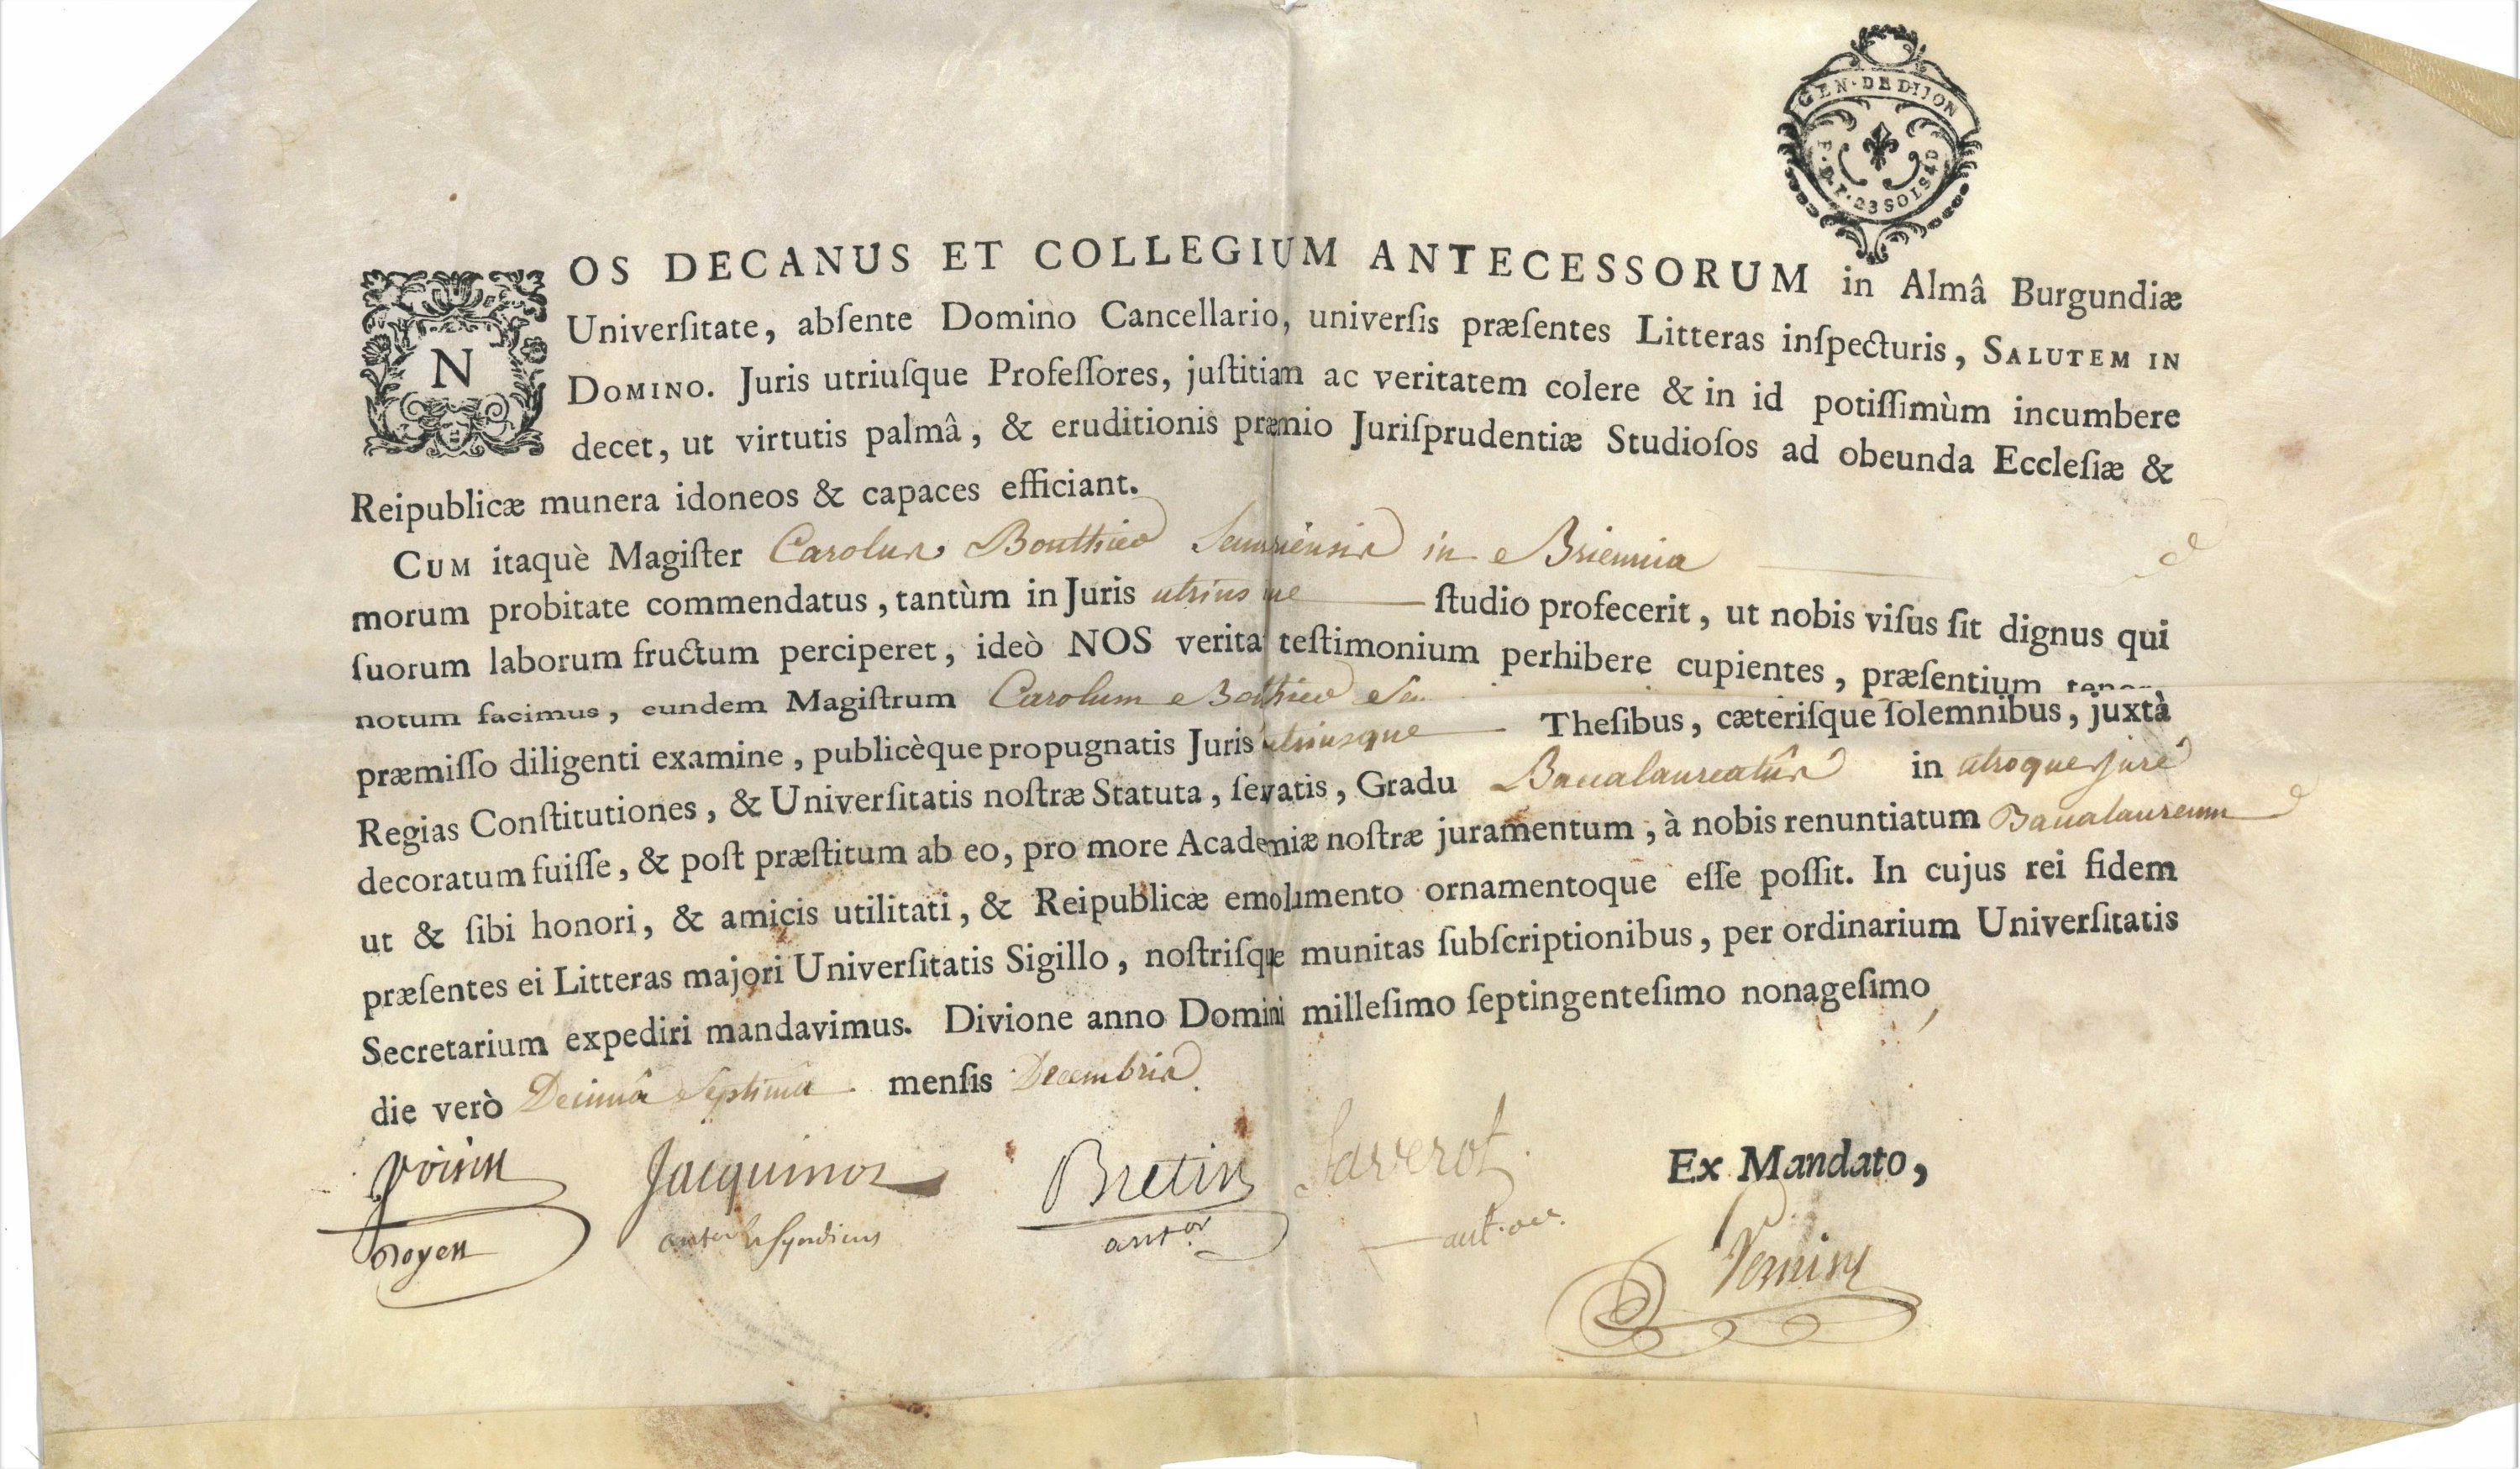 GEN·DE DIJON
F.P.P.23 SOLS 4 D
NOS DECANUS ET COLLEGIUM ANTECESSORUM in Almâ Burgundiæ
Univerſitate, abſente Domino Cancellario, univerſis præſentes Litteras inſpecturis, SALUTEM IN
DOMINO. Juris utriuſque Profeſſores, juſtitiam ac veritatem colere & in id potiſſimùm incumbere
decet, ut virtutis palmâ, & eruditionis præmio Juriſprudentiæ Studioſos ad obeunda Eccleſiæ &
Reipublicæ munera idoneos & capaces efficiant.
CUM itaquè Magiſter Carolus Bouthier Semuriensis in Briennia
morum probitate commendatus, tantùm in Juris utriusque ſtudio profecerit, ut nobis viſus ſit dignus qui
ſuorum laborum fructum perciperet, ideò NOS verita teſtimonium perhibere cupientes, præſentium tenore
notum facimus, eundem Magiſtrum Carolum
præmiſſo diligenti examine, publicèque propugnatis Juris utriusque Theſibus, cæteriſque ſolemnibus, juxtà
Regias Conſtitutiones, & Univerſitatis noſtræ Statuta, ſervatis, Gradu Baccalaureatûs in utroque jure
decoratum fuiſſe, & poſt præſtitum ab eo, pro more Academiæ noſtræ juramentum, à nobis renuntiatum Baccalaureum
ut & ſibi honori, & amicis utilitati, & Reipublicæ emolumento ornamentoque eſſe poſſit. In cujus rei fidem
præſentes ei Litteras majori Univerſitatis Sigillo, noſtriſque munitas ſubſcriptionibus, per ordinarium Univerſitatis
Secretarium expediri mandavimus. Divione anno Domini milleſimo ſeptingenteſimo nonageſimo,
die verò Decimâ Septima menſis Decembris.
Voisin Jacquinot Bretin Saverot Ex Mandato,
Doyen antor & Syndicus antor